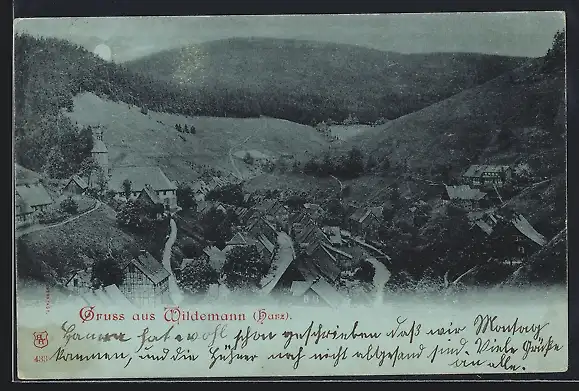 Gruss aus Wildemann (Harz).
Hanna hat wohl schon geschrieben daß wir Montag
433
kommen, und die Hühner noch nicht abgesand sind. Viele Grüße
an alle.